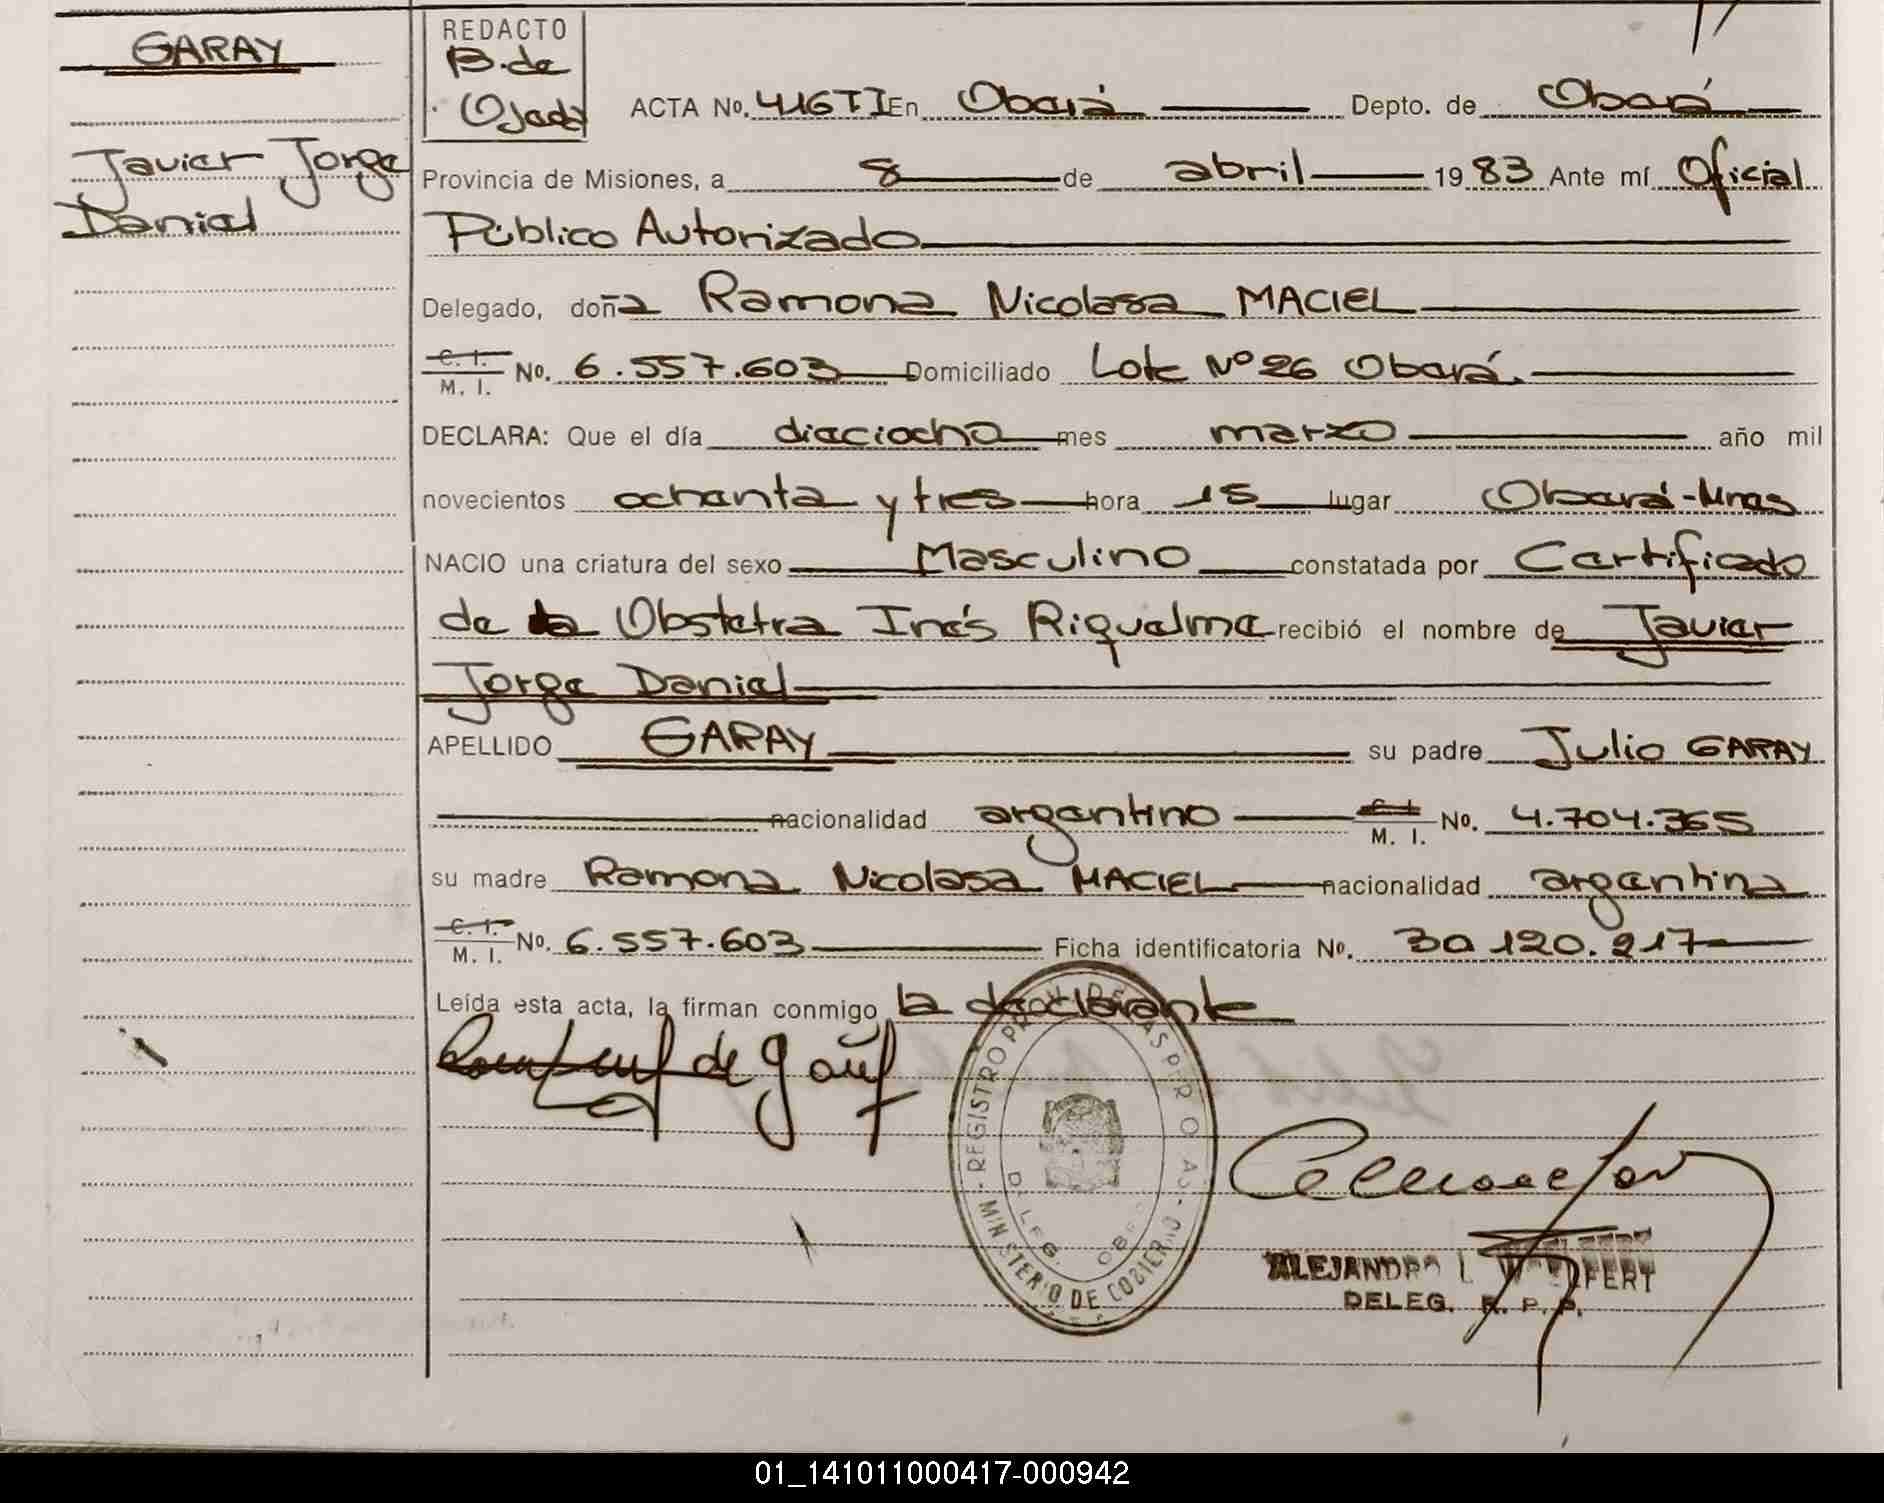 GARAY
Javier Jorge
Daniel
REDACTO
B. de
Ojeda
ACTA No. 416 T I En Oberá Depto. de Oberá
Provincia de Misiones, a 8 de abril 19 83 Ante mí Oficial
Público Autorizado
Delegado, doña Ramona Nicolasa MACIEL
C. I.
M. I. No. 6.557.603 Domiciliado Lote Nº 26 Oberá.
DECLARA: Que el día dieciocho mes marzo año mil
novecientos ochenta y tres hora 15 lugar Oberá-Mnes
NACIO una criatura del sexo Masculino constatada por Certificado
de la Obstetra Inés Riquelme recibió el nombre de Javier
Jorge Daniel
APELLIDO GARAY su padre Julio GARAY
nacionalidad argentino C. I. M. I. No. 4.704.365
su madre Ramona Nicolasa MACIEL nacionalidad argentina
C. I.
M. I. No. 6.557.603 Ficha identificatoria No. 30 120.217
Leída esta acta, la firman conmigo la declarante
de
REGISTRO PROV. DE LAS PERSONAS
DELEG. OBERÁ
MINISTERIO DE GOBIERNO
ALEJANDRO L.
DELEG. R. P. P.
01_141011000417-000942